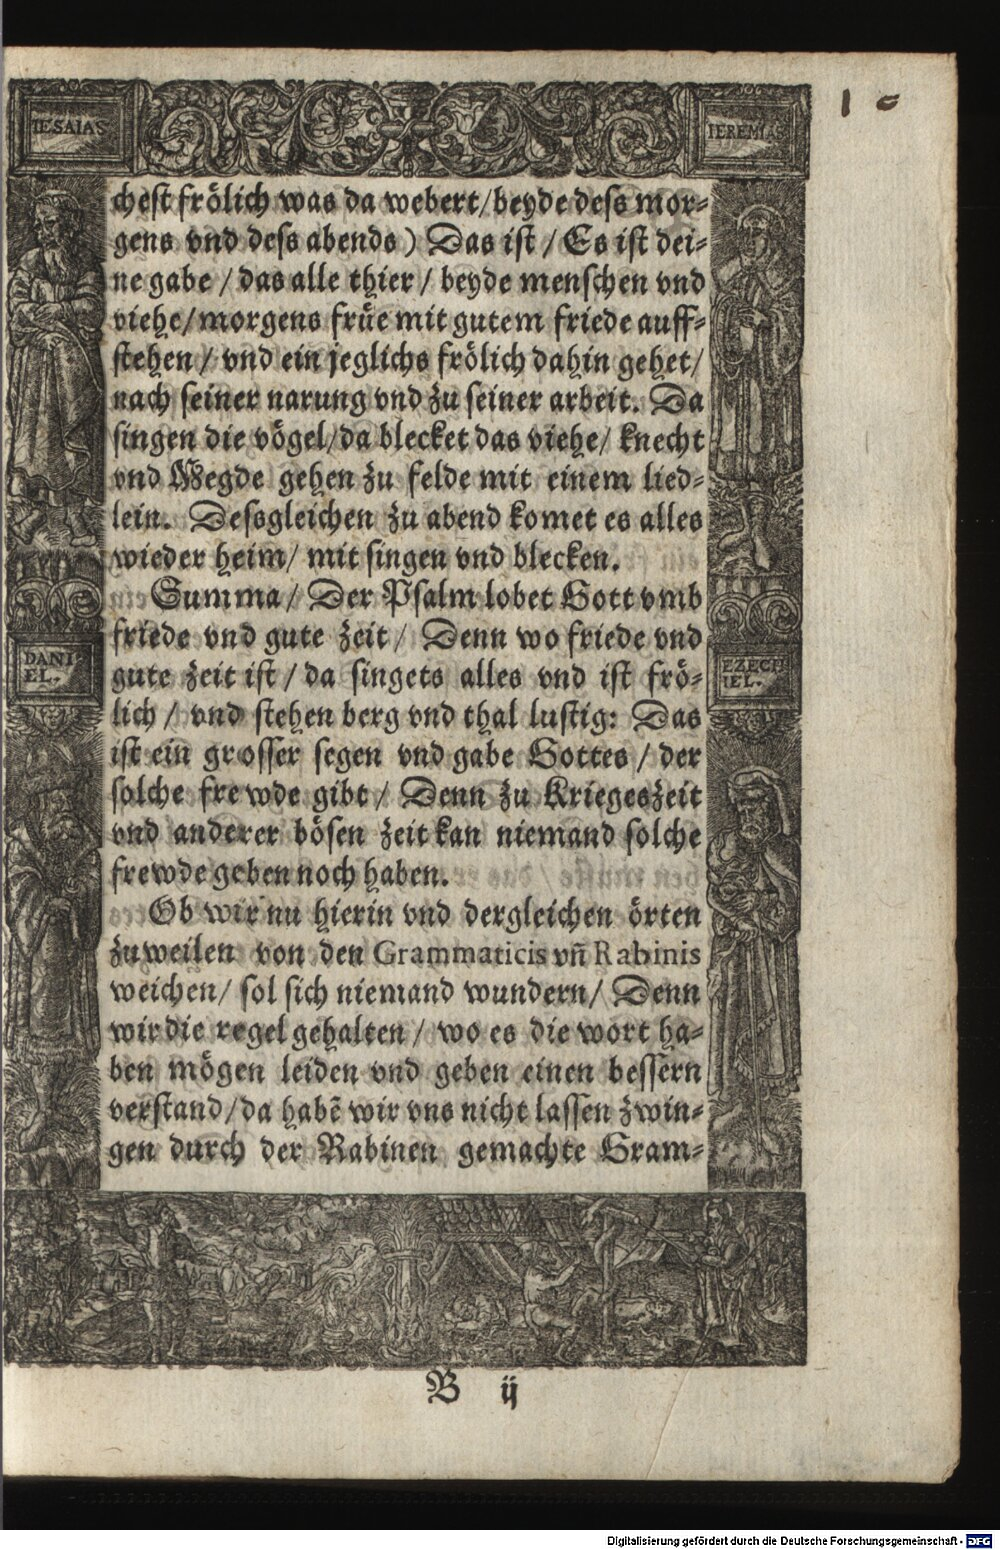 IESAIAS
IEREMIAS
chest frölich was da webert/beyde dess mor⸗
gens vnd dess abends) Das ist / Es ist dei⸗
ne gabe / das alle thier / beyde menschen vnd
viehe/morgens früe mit gutem friede auff⸗
stehen / vnd ein jeglichs frölich dahin gehet/
nach seiner narung vnd zu seiner arbeit. Da
singen die vögel/da blecket das viehe/ knecht
vnd Megde gehen zu felde mit einem lied⸗
lein. Dessgleichen zu abend komet es alles
wieder heim/ mit singen vnd blecken.
Summa/ Der Psalm lobet Gott vmb
friede vnd gute zeit/ Denn wo friede vnd
gute zeit ist / da singets alles vnd ist frö⸗
lich / vnd stehen berg vnd thal lustig: Das
ist ein grosser segen vnd gabe Gottes / der
solche frewde gibt/ Denn zu Kriegeszeit
vnd anderer bösen zeit kan niemand solche
frewde geben noch haben.
Ob wir nu hierin vnd dergleichen örten
zuweilen von den Grammaticis vñ Rabinis
weichen/ sol sich niemand wundern/ Denn
wir die regel gehalten / wo es die wort ha⸗
ben mögen leiden vnd geben einen bessern
verstand/da habẽ wir vns nicht lassen zwin⸗
gen durch der Rabinen gemachte Gram⸗
DANI
EL.
EZECH
IEL.
B ij
Digitalisierung gefördert durch die Deutsche Forschungsgemeinschaft - DFG